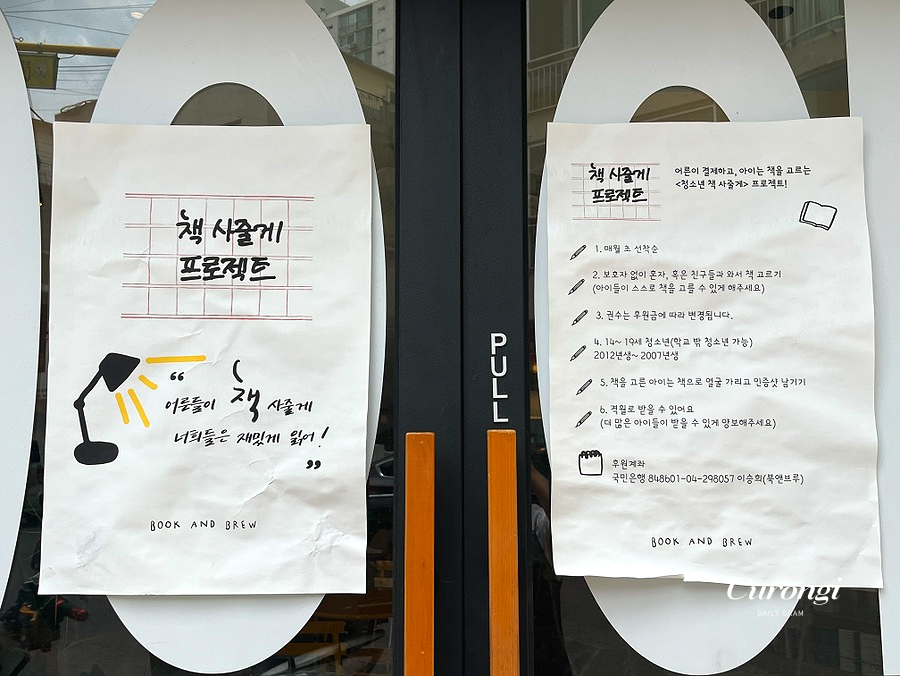 책 사줄게
프로젝트
“ 어른들이 책 사줄게
너희들은 재밌게 읽어! ”
BOOK AND BREW
PULL
책 사줄게
프로젝트
어른이 결제하고, 아이는 책을 고르는
<청소년 책 사줄게> 프로젝트!
1. 매월 초 선착순
2. 보호자 없이 혼자, 혹은 친구들과 와서 책 고르기
(아이들이 스스로 책을 고를 수 있게 해주세요)
3. 권수는 후원금에 따라 변경됩니다.
4. 14~ 19세 청소년(학교 밖 청소년 가능)
2012년생~ 2007년생
5. 책을 고른 아이는 책으로 얼굴 가리고 인증샷 남기기
6. 격월로 받을 수 있어요
(더 많은 아이들이 받을 수 있게 양보해주세요)
후원계좌
국민은행 848601-04-298057 이승희(북앤브루)
BOOK AND BREW
Curongi
DAILY GRAM